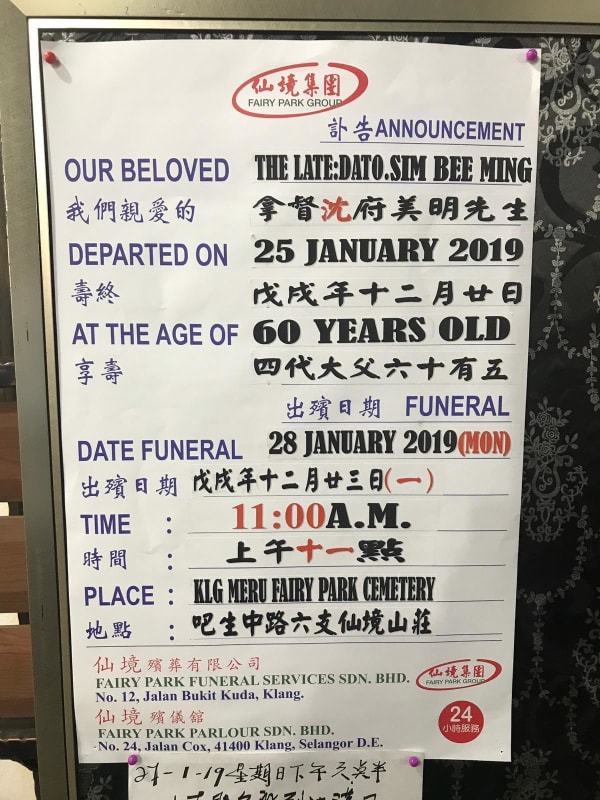 仙境集團
FAIRY PARK GROUP
訃告ANNOUNCEMENT
OUR BELOVED THE LATE:DATO.SIM BEE MING
我們親愛的 拿督沈府美明先生
DEPARTED ON 25 JANUARY 2019
壽終 戊戌年十二月廿日
AT THE AGE OF 60 YEARS OLD
享壽 四代大父六十有五
出殯日期 FUNERAL
DATE FUNERAL 28 JANUARY 2019(MON)
出殯日期 戊戌年十二月廿三日(一)
TIME : 11:00A.M.
時間 : 上午十一點
PLACE : KLG MERU FAIRY PARK CEMETERY
地點 : 吧生中路六支仙境山莊
仙境殯葬有限公司
FAIRY PARK FUNERAL SERVICES SDN. BHD.
No. 12, Jalan Bukit Kuda, Klang.
仙境集團
FAIRY PARK GROUP
仙境殯儀舘
FAIRY PARK PARLOUR SDN. BHD.
No. 24, Jalan Cox, 41400 Klang, Selangor D.E.
24
小時服務
27-1-19星期日下午